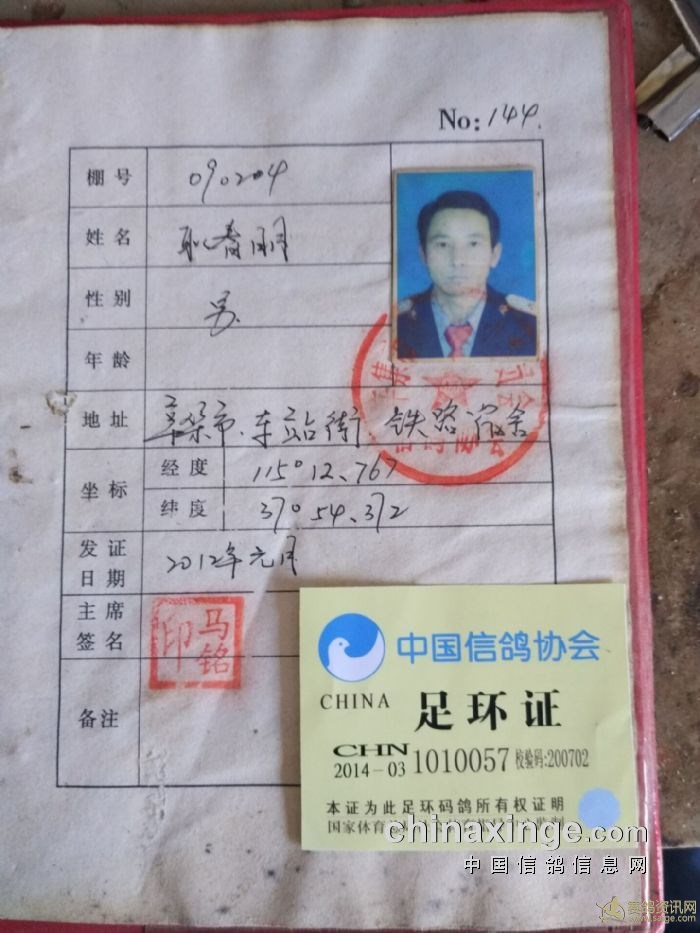 No: 144.
棚号 090204
姓名 耿春明
性别 男.
年龄
地址 辛集市.车站街 铁路宿舍
坐标 经度 115°12.767
纬度 37°54.372
发证日期 2012年元月
主席签名 马铭印
备注
信鸽协会
中国信鸽协会
CHINA 足环证
CHN
2014-03 1010057 校验码:200702
本证为此足环码鸽所有权证明
国家体育
chinaxinge.com
中国信鸽信息网
赛鸽资讯网